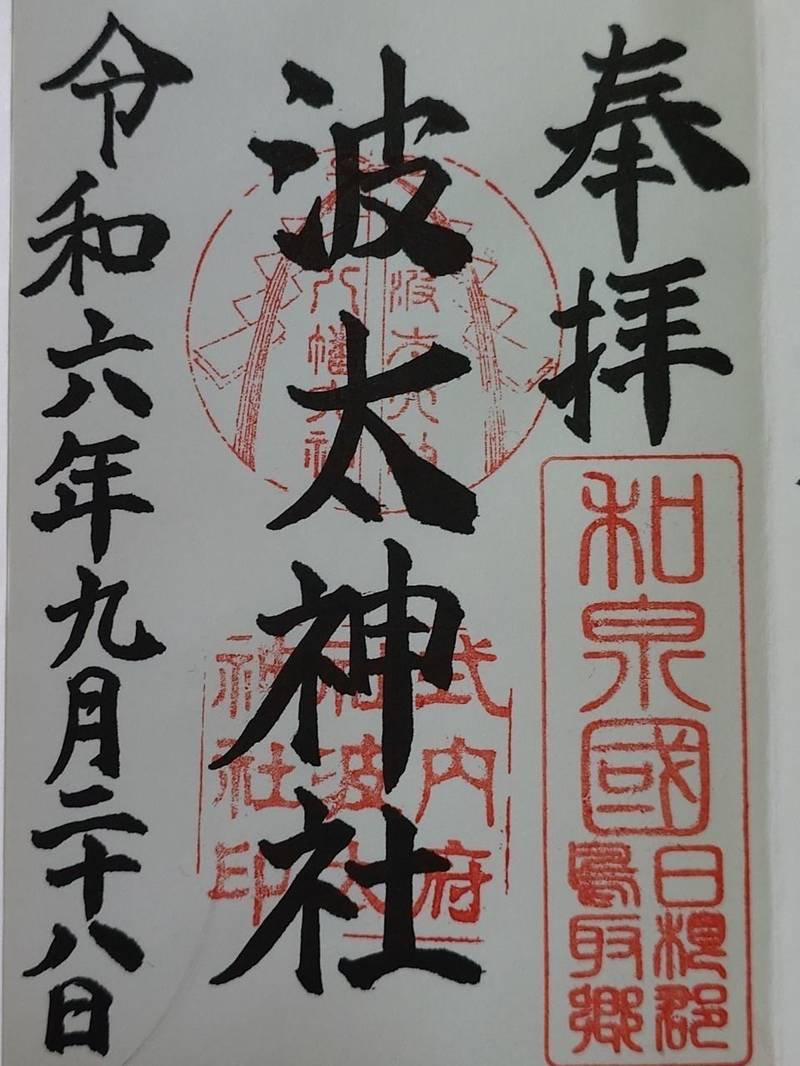 奉拝
和泉國
日根郡
鳥取郷
波太神社
波太大神
八幡大神
式内府
社波太
神社印
令和六年九月二十八日